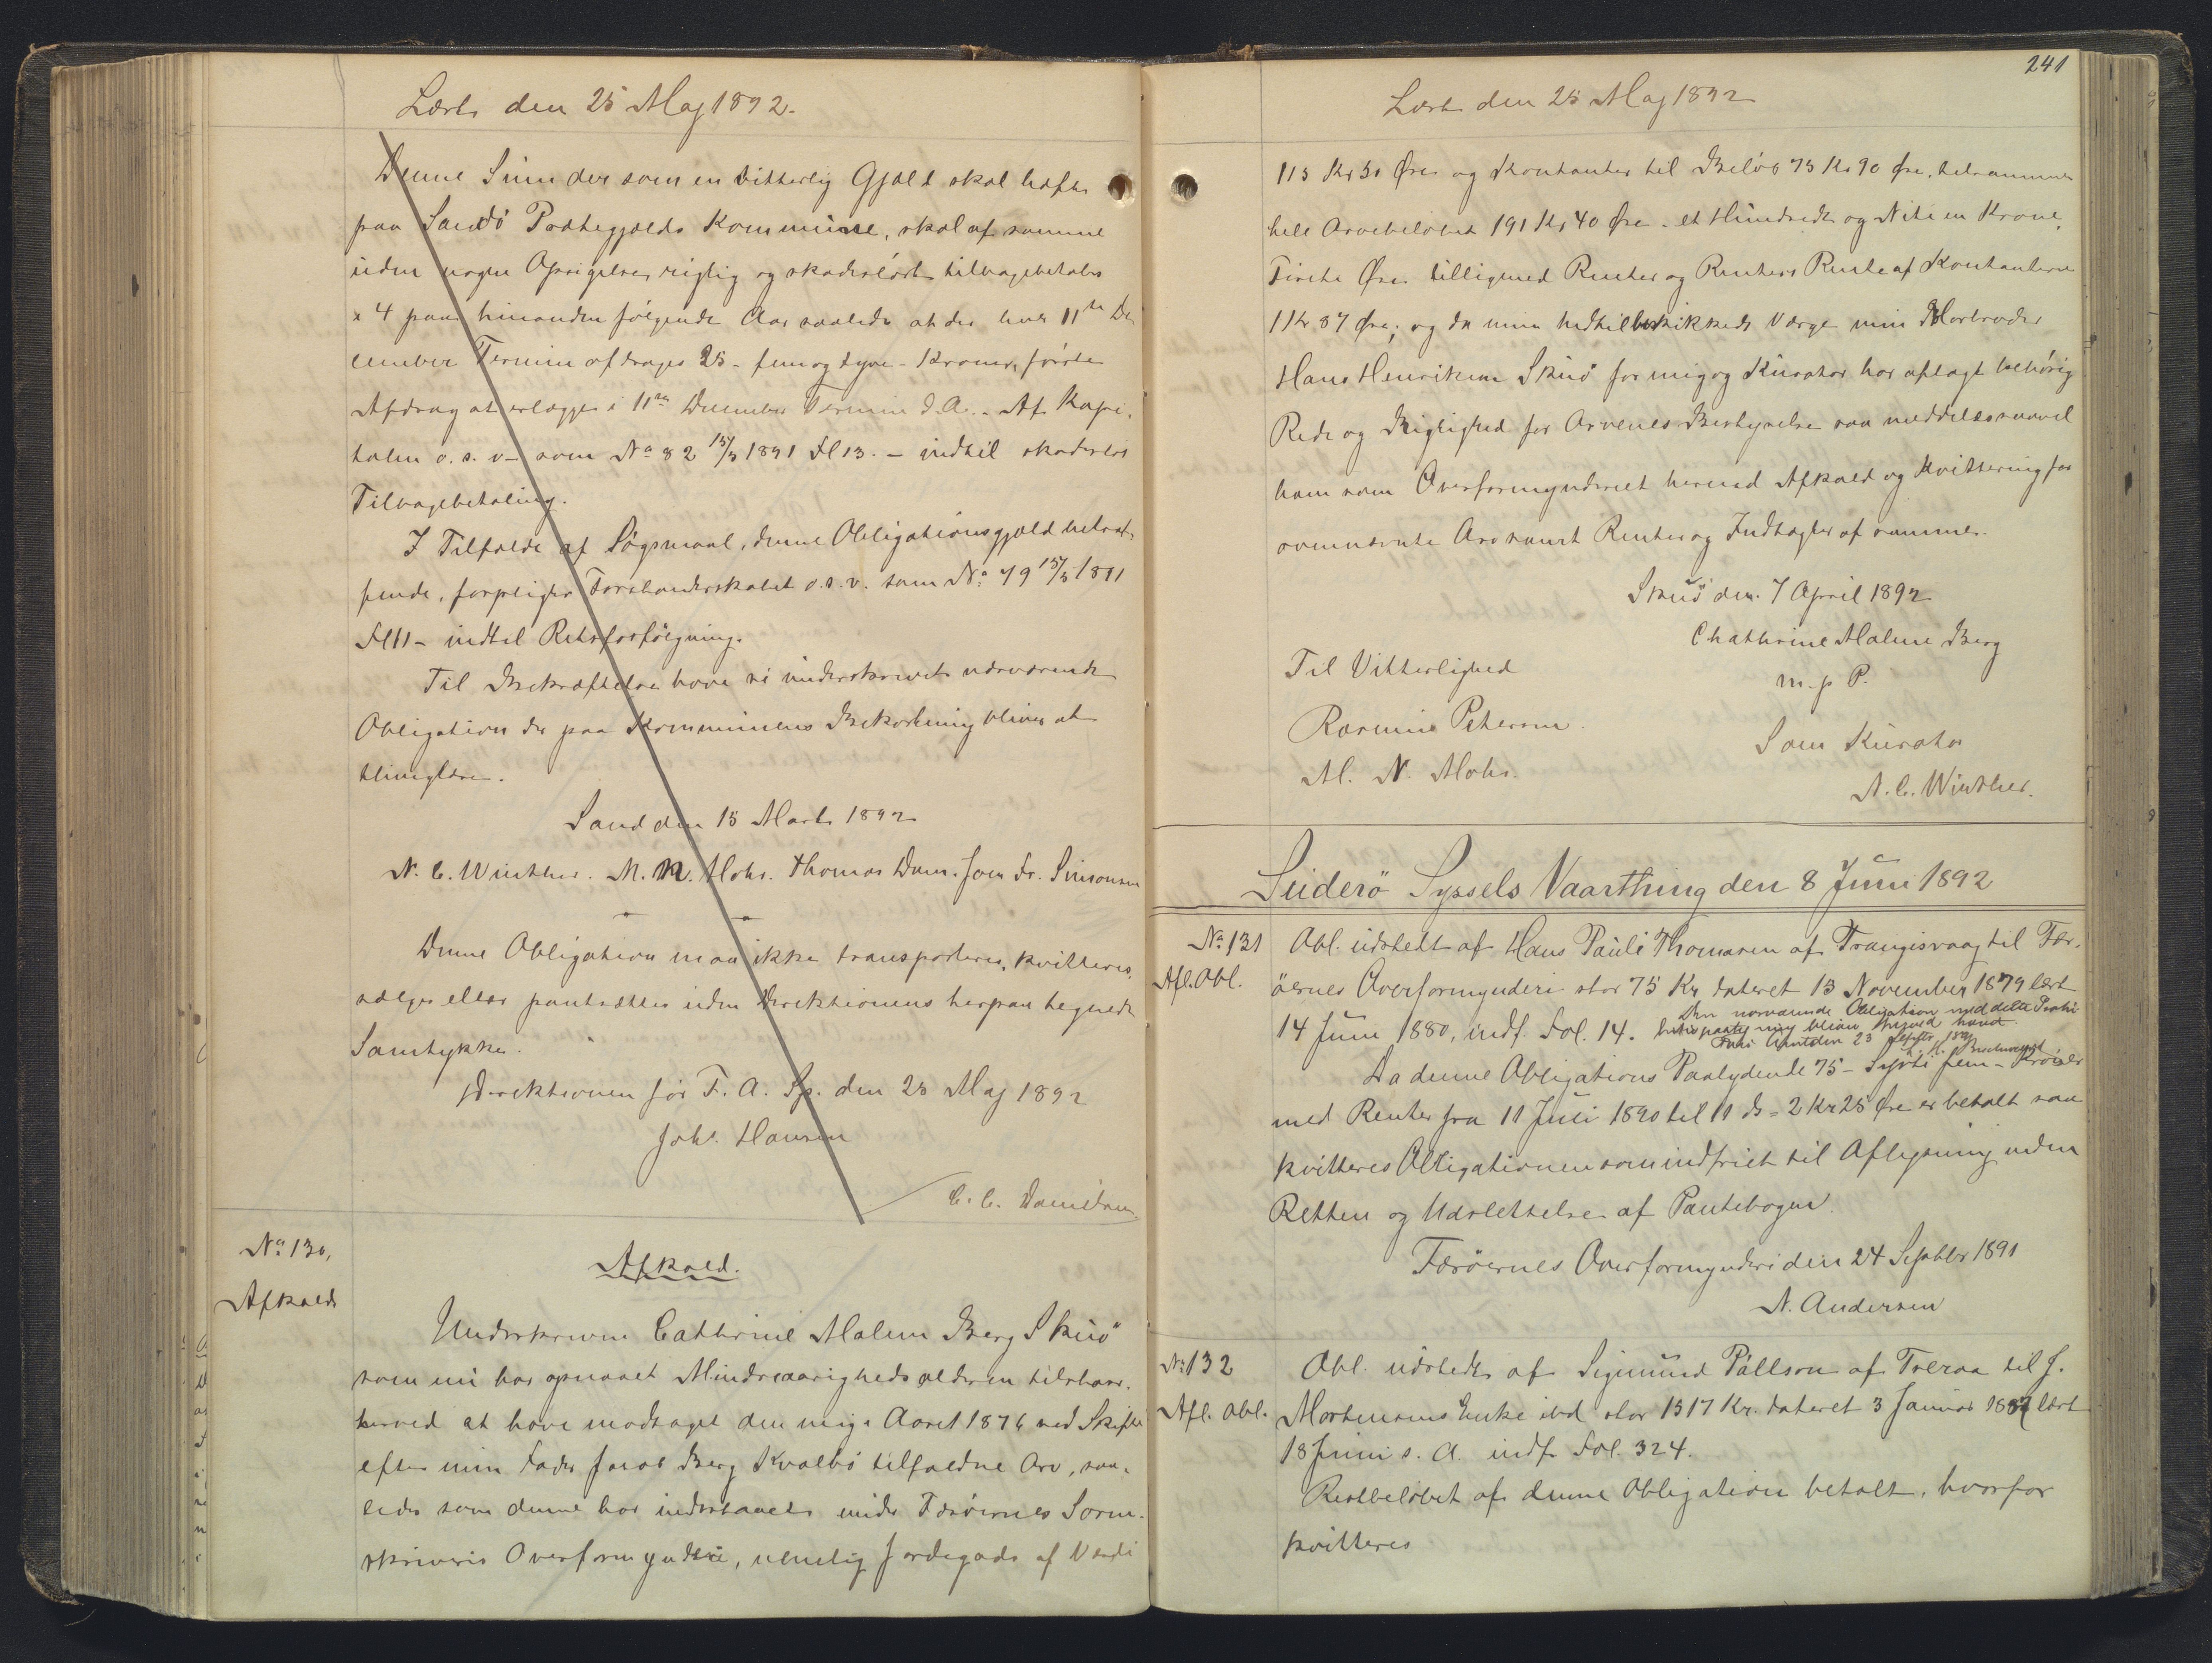 Læst den 25 Maj 1892.
Denne Sum der som en vitterlig Gjæld skal hæfte
paa Sandø Præstegjælds Kommune, skal af samme
uden nogen Opsigelse rigtig og skadesløst tilbagebetales
i 4 paa hinanden følgende Aar saaledes at der hver 11te De
cember Termin afdrages 25 - fem og tyve - Kroner, første
Afdrag at erlægge i 11te December Termin d. A. - Af Kapi-
talen o. s. v - som No 82 15/5 1891 Fol 13. - indtil skadesløs
Tilbagebetaling.
I Tilfælde af Søgsmaal, denne Obligationsgjæld betræf-
fende, forpligter Forstanderskabet o. s. v. som No 79 15/5 1891
Fol 11 - indtil Retsforfølgning.
Til Bekræftelse have vi underskrevet nærværende
Obligation der paa Kommunens Bekostning bliver at
thinglæse.
Sand den 15 Marts 1892
N. C. Winther. M. N. Mohr. Thomas Dam. Joen Fr. Simonsen
Denne Obligation maa ikke transporteres, kvitteres,
sælges eller pantsættes uden Direktionens herpaa tegnede
Samtykke.
Direktionen for F. A. Sp. den 25 Maj 1892
Johs. Hansen
C. C. Danielsen
No 130,
Afkald
Afkald.
Underskrevne Cathrine Malene Berg Skuø
som nu har opnaaet Mindreaarighedsalderen tilstaar
herved at have modtaget den mig i Aaret 1876 ved Skifte
efter min Fader Jacob Berg Kvalbø tilfaldne Arv, saa-
ledes som denne har indestaaet under Færøernes Soren-
skriveris Overformynderi, nemlig Jordegods af Værdi
241
Læst den 25 Maj 1892
115 Kr 50 Øre og Kontanter til Beløb 75 Kr 90 Øre, tilsammen
hele Arvebeløbet 191 Kr 40 Øre - et Hundrede og Niti en Krone,
Firti Øre tillige med Renter og Renters Rente af Kontanterne
1 Kr 87 Øre; og da min hidtil beskikkede Værge min Morbroder
Hans Henriksen Skuø for mig og Kurator har aflagt behørig
Rede og Rigtighed for Arvenes Bestyrelse saa meddeles saavel
ham som Overformynderiet herved Afkald og Kvittering for
ovennævnte Arv samt Renter og Indtægter af samme.
Skuø den 7 April 1892
Chathrine Malene Berg
m. p P.
Til Vitterlighed
Rasmus Petersen
M. N. Mohr.
Som Kurator
N. C. Winther.
Suderø Syssels Vaarthing den 8 Juni 1892
No 131
Afl. Obl.
Obl. udstedt af Hans Pauli Thomasen af Trangisvaag til Fær-
øernes Overformynderi stor 75 Kr dateret 13 November 1879 læst
14 Juni 1880, indf. Fol. 14.
Den nærværende Obligation meddelte Prohi
bitivpaategning bliver herved hævet.
Færø Amt den 23 Septbr 1891
Da denne Obligations Paalydende 75 - Sytti fem - Kroner
med Renter fra 11 Juni 1890 til 11 ds = 2 Kr 25 Øre er betalt saa
kvitteres Obligationen som indfriet til Aflysning inden
Retten og Udslettelse af Pantebogen.
Færøernes Overformynderi den 24 Septbr 1891
N. Andersen
No 132
Afl. Obl.
Obl. udstedt af Sigmund Pállson af Tveraa til J.
Mortensens Enke ibd stor 1517 Kr. dateret 3 Januar 1887 læst
18 Juni s. A. indf. Fol. 324.
Restbeløbet af denne Obligation betalt, hvorfor
kvitteres